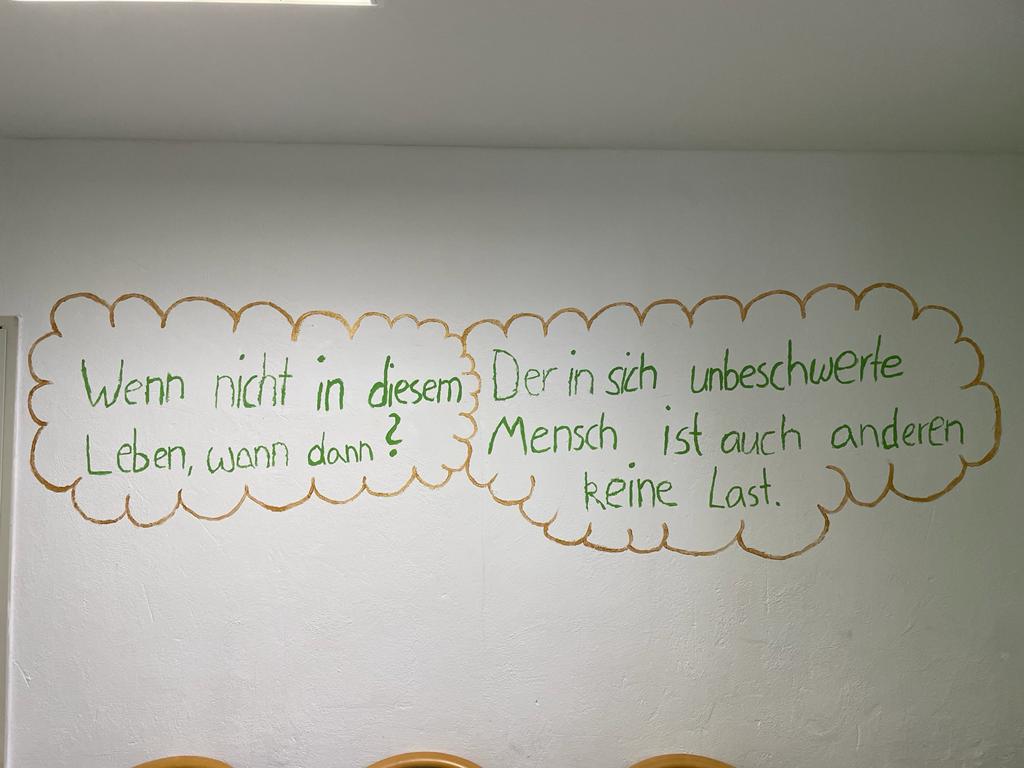 Wenn nicht in diesem
Leben, wann dann?
Der in sich unbeschwerte
Mensch ist auch anderen
keine Last.